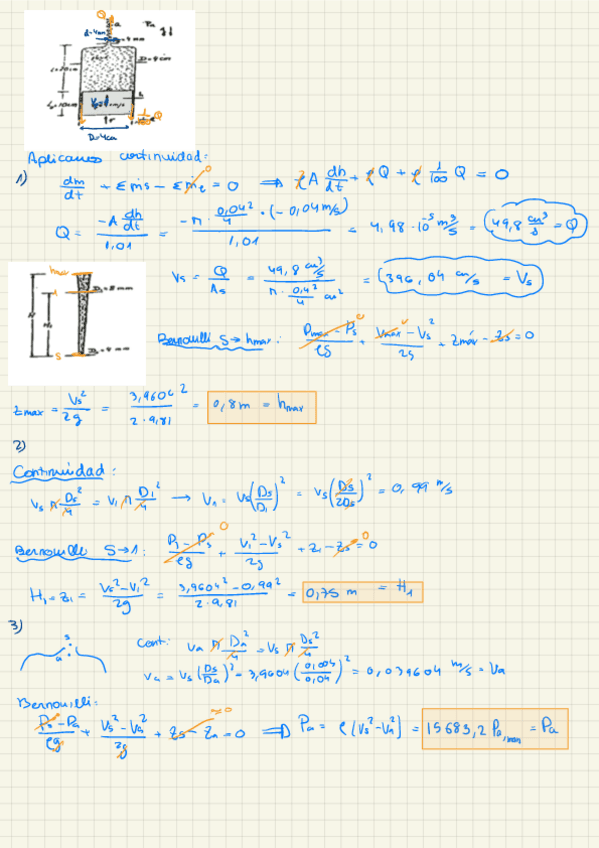 Q
a
Pa
g↓
d=4mm
D=8 mm
D=4cm
1/100 Q
Aplicamos continuidad:
1)
dm/dt + Σṁs - Σṁe = 0 ⟹ ρA dh/dt + ρQ + ρ 1/100 Q = 0
Q = (-A dh/dt)/1,01 = (-π · 0,04²/4 · (-0,04 m/s))/1,01 = 4,98·10⁻⁵ m³/s = 49,8 cm³/s = Q
Vs = Q/As = (49,8 cm³/s)/(π · 0,4²/4 cm²) = 396,04 cm/s = Vs
hmax
1
S
H
H₁
D₁=8 mm
Ds=4 mm
Bernouilli S→hmax: (Pmax - Ps)/ρg + (Vmax² - Vs²)/2g + zmáx - zs = 0
zmax = Vs²/2g = 3,9604²/(2·9,81) = 0,8 m = hmax
2)
Continuidad:
Vs π Ds²/4 = V₁ π D₁²/4 → V₁ = Vs(Ds/D₁)² = Vs(Ds/2Ds)² = 0,99 m/s
Bernouilli S→1: (P₁ - Ps)/ρg + (V₁² - Vs²)/2g + z₁ - zs = 0
H₁ = z₁ = (Vs² - V₁²)/2g = (3,9604² - 0,99²)/(2·9,81) = 0,75 m = H₁
3)
s
a
Cont: Va π Da²/4 = Vs π Ds²/4
Va = Vs(Ds/Da)² = 3,9604(0,004/0,04)² = 0,039604 m/s = Va
Bernouilli:
(Ps - Pa)/ρg + (Vs² - Va²)/2g + zs - za = 0 ⟹ Pa = ρ(Vs² - Va²) = 15683,2 Pa,man = Pa